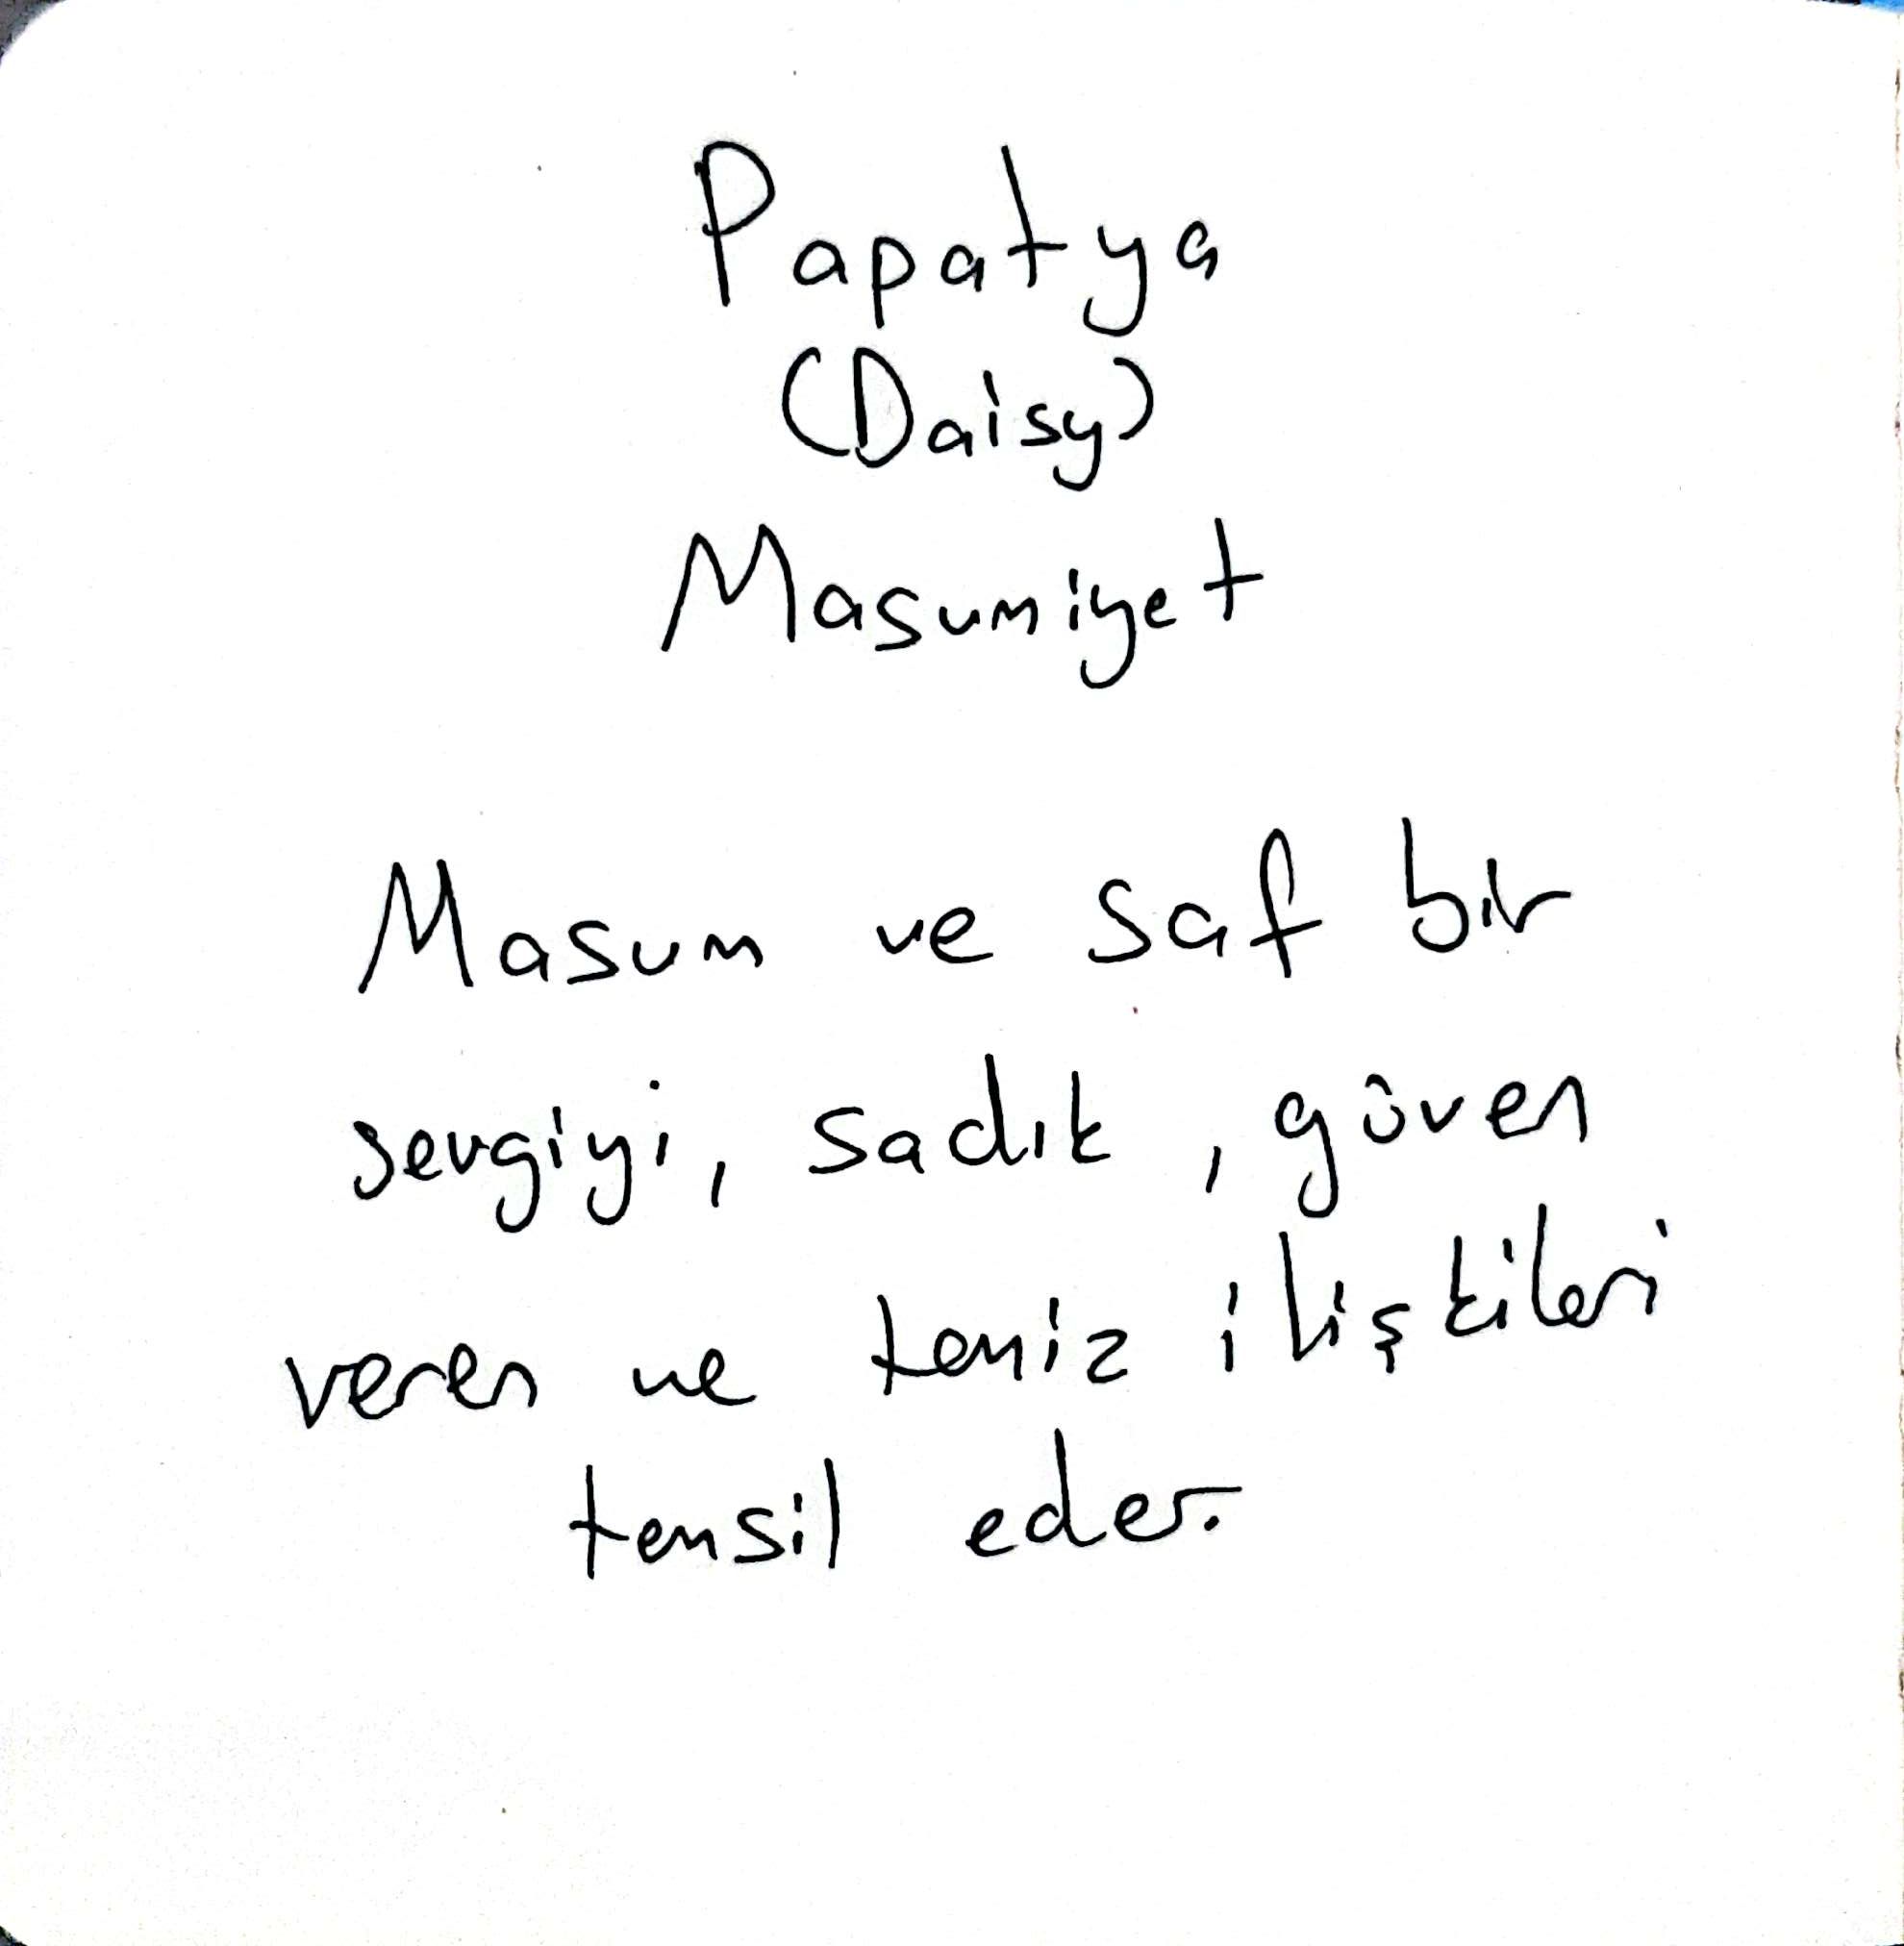 Papatya
(Daisy)
Masumiyet
Masum ve saf bir
sevgiyi, sadık, güven
veren ve temiz ilişkileri
temsil eder.